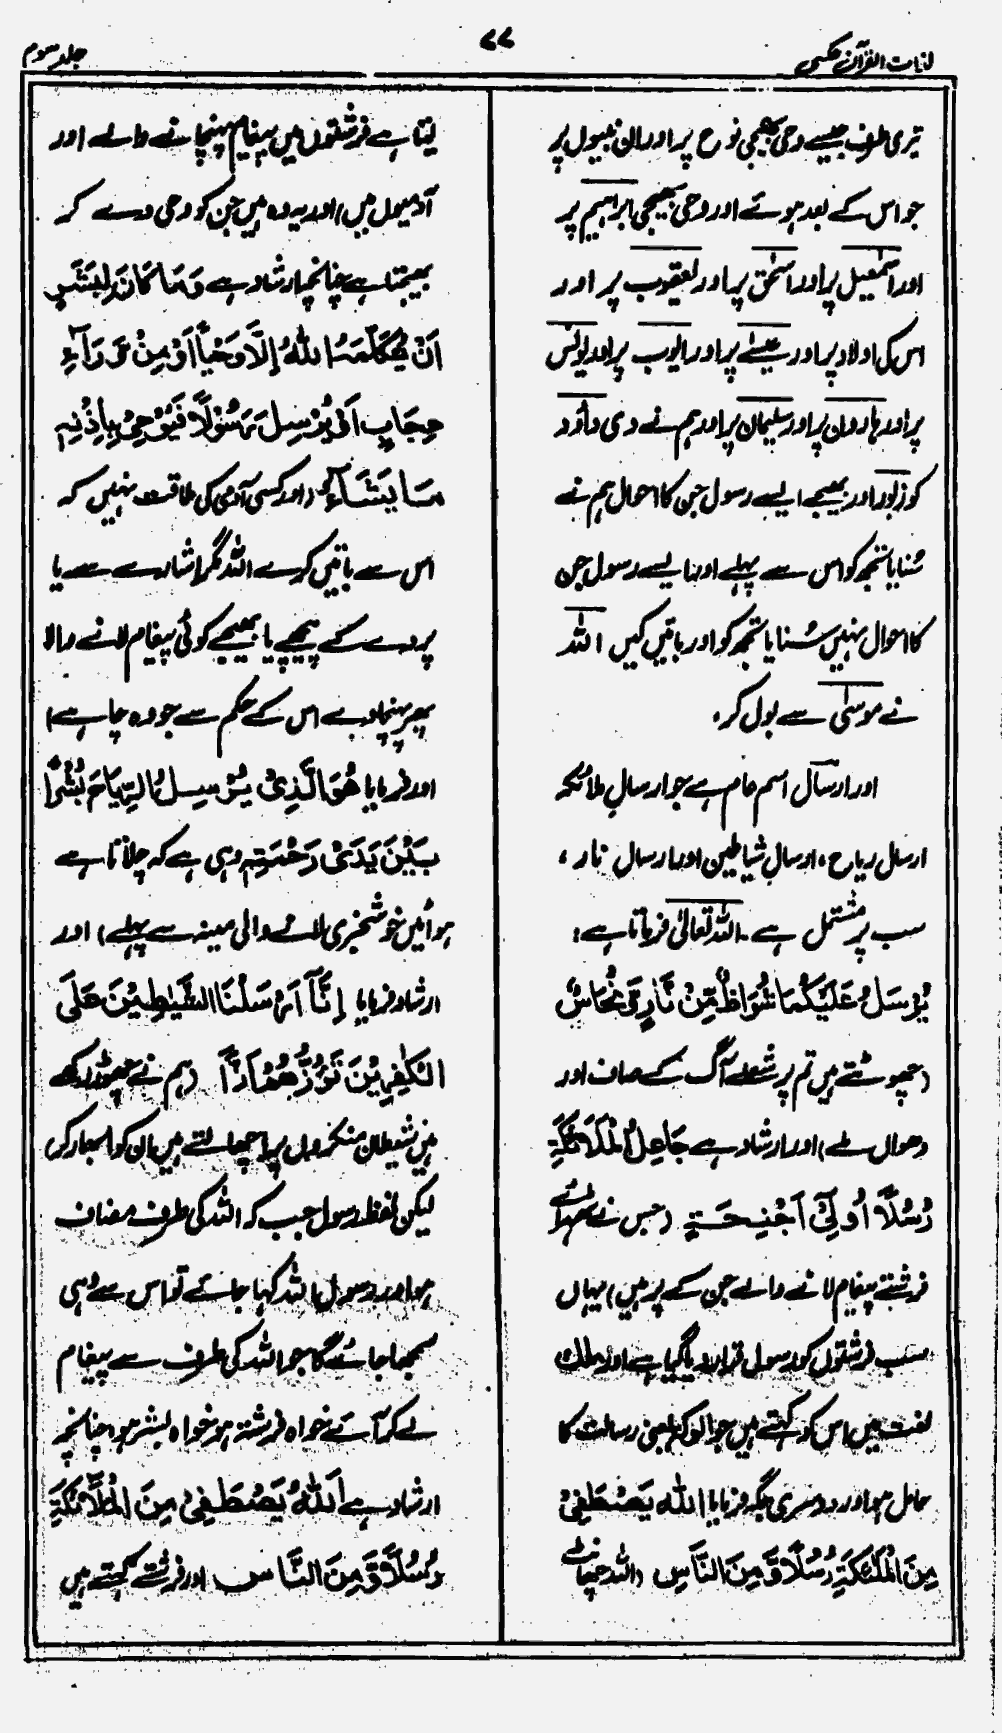 لغات القرآن عکسی
۷۷
جلد سوم
تیری طرف جیسے وحی بھیجی نوح پر اور ان نبیوں پر
جو اس کے بعد ہوئے اور وحی بھیجی ابراہیم پر
اور اسمٰعیل پر اور اسحٰق پر اور یعقوب پر اور
اس کی اولاد پر اور عیسٰے پر اور ایوب پر اور یونس
پر اور ہارون پر اور سلیمان پر اور ہم نے دی داؤد
کو زبور اور بھیجے ایسے رسول جن کا احوال ہم نے
سُنایا تجھ کو اس سے پہلے اور ایسے رسول جن
کا احوال نہیں سُنایا تجھ کو اور باتیں کیں اللہ
نے موسٰی سے بول کر،
اور ارسال اسم عام ہے جو ارسالِ ملائکہ
ارسال ریاح، ارسالِ شیاطین اور ارسال نار،
سب پر مشتمل ہے۔ اللہ تعالٰی فرماتا ہے:
يُرْسَلُ عَلَيْكُمَا شُوَاظٌ مِّنْ نَّارٍ وَّنُحَاسٌ
(چھوٹتے ہیں تم پر شعلے آگ کے صاف اور
دھواں ملے) اور ارشاد ہے جَاعِلِ الْمَلٰٓئِكَةِ
رُسُلًا اُولِیْٓ اَجْنِحَةٍ (جس نے ٹھہرائے
فرشتے پیغام لانے والے جن کے پر ہیں) یہاں
سب فرشتوں کو رسول قرار دیا گیا ہے اور ملک
لغت میں اس کو کہتے ہیں جو الوکہ یعنی رسالت کا
حامل ہو اور دوسری جگہ فرمایا اَللّٰهُ يَصْطَفِیْ
مِنَ الْمَلٰٓئِكَةِ رُسُلًا وَّمِنَ النَّاسِ (اللہ چھانٹ
لیتا ہے فرشتوں میں پیغام پہنچانے والے اور
آدمیوں میں) اور یہ وہ ہیں جن کو وحی دے کر
بھیجتا ہے چنانچہ ارشاد ہے وَمَا كَانَ لِبَشَرٍ
اَنْ يُّكَلِّمَهُ اللّٰهُ اِلَّا وَحْيًا اَوْ مِنْ وَّرَآءِ
حِجَابٍ اَوْ يُرْسِلَ رَسُوْلًا فَيُوْحِیَ بِاِذْنِهٖ
مَا يَشَآءُ (اور کسی آدمی کی طاقت نہیں کہ
اس سے باتیں کرے اللہ مگر اشارے سے یا
پردے کے پیچھے یا بھیجے کوئی پیغام لانے والا
پھر پہنچاوے اس کے حکم سے جو وہ چاہے)
اور فرمایا هُوَ الَّذِیْ يُرْسِلُ الرِّيَاحَ بُشْرًا
بَيْنَ يَدَیْ رَحْمَتِهٖ وہی ہے کہ چلاتا ہے
ہوائیں خوشخبری لانے والی مینہ سے پہلے) اور
ارشاد فرمایا اِنَّآ اَرْسَلْنَا الشَّيٰطِيْنَ عَلَی
الْكٰفِرِيْنَ تَؤُزُّهُمْ اَزًّا (ہم نے چھوڑ رکھے
ہیں شیطان منکروں پر اچھالتے ہیں ان کو ابھار کر)
لیکن لفظ رسول جب کہ اللہ کی طرف مضاف
ہو اور رسول اللہ کہا جائے تو اس سے وہی
سمجھا جائے گا جو اللہ کی طرف سے پیغام
لے کر آئے خواہ فرشتہ ہو خواہ بشر ہو، چنانچہ
ارشاد ہے اَللّٰهُ يَصْطَفِیْ مِنَ الْمَلٰٓئِكَةِ
رُسُلًا وَّمِنَ النَّاسِ اور فرشتے کہتے ہیں